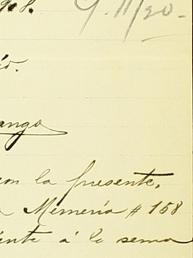 908.
9.11/20-
io.
ango
con la presente,
Memoria # 158
ente á la sema